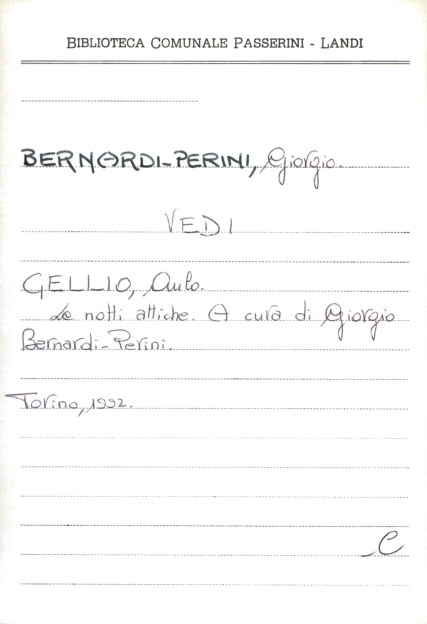 BIBLIOTECA COMUNALE PASSERINI - LANDI
BERNARDI-PERINI, Giorgio.
VEDI
GELLIO, Aulo.
Le notti attiche. A cura di Giorgio
Bernardi-Perini.
Torino, 1992.
C